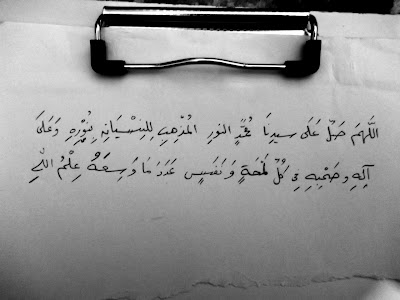 اللَّهُمَ صَلِّ عَلَى سيدِنَا مُحَمَّدٍ النورِ المُذْهِبِ لِلنِسْيَانِهِ بِنُوْرِهِ وَعَلَىَ
آلِهِ وصَحْبِهِ فِي كُلِّ لَمْحَةٍ وَنَفَسٍ عَدَدَ مَا وَسِعَهُ عِلْمُ اللَّهِ